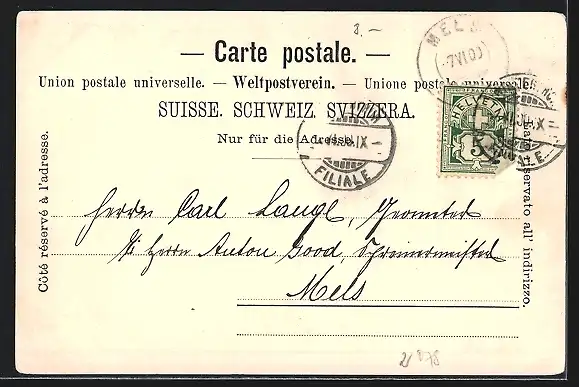 8.—
— Carte postale. —
Union postale universelle. — Weltpostverein. — Unione postale universale.
SUISSE. SCHWEIZ. SVIZZERA.
Nur für die Adresse.
Côté réservé à l'adresse.
Lato riservato all' indirizzo.
MELS
7 VI 00
HELVETIA
5
IX
FILIALE
IX
FILIALE
Herrn Carl Lange, Geometer
p/ Herrn Anton Good, Schreinermeister
Mels